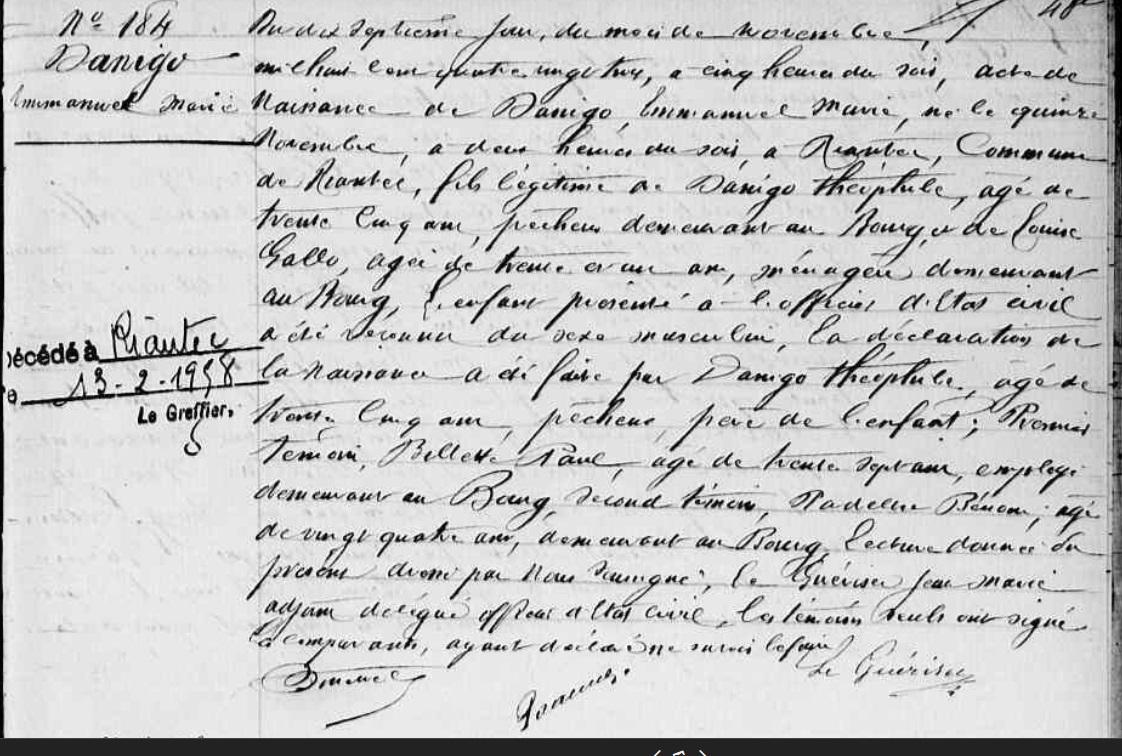 Nº 184
Danigo
Emmanuel Marie
Décédé à Riantec
13-2-1958
Le Greffier,
Du dix Septième jour, du mois de Novembre,
mil huit cent quatre vingt trois, à cinq heures du soir, acte de
Naissance de Danigo, Emmanuel Marie, né le quinze
Novembre, à deux heures du soir, à Riantec, Commune
de Riantec, fils légitime de Danigo Théophile, agé de
trente cinq ans, pêcheur demeurant au Bourg, et de Louise
Gallo, agée de trente et un ans, ménagère demeurant
au Bourg, L'enfant présenté à l'officier d'Etat civil
a été reconnu du sexe masculin, La déclaration de
la naissance a été faite par Danigo Théophile, agé de
trente cinq ans, pêcheur, père de l'enfant; Premier
témoin, Paul, agé de trente sept ans, employé
demeurant au Bourg, Second témoin, agé
de vingt quatre ans, demeurant au Bourg, Lecture donnée du
présent dressé par Nous Soussigné, Le Guériser Jean Marie
adjoint délégué officier d'Etat civil, les témoins seuls ont signé
Comparants, ayant déclaré ne savoir le faire
Le Guériser